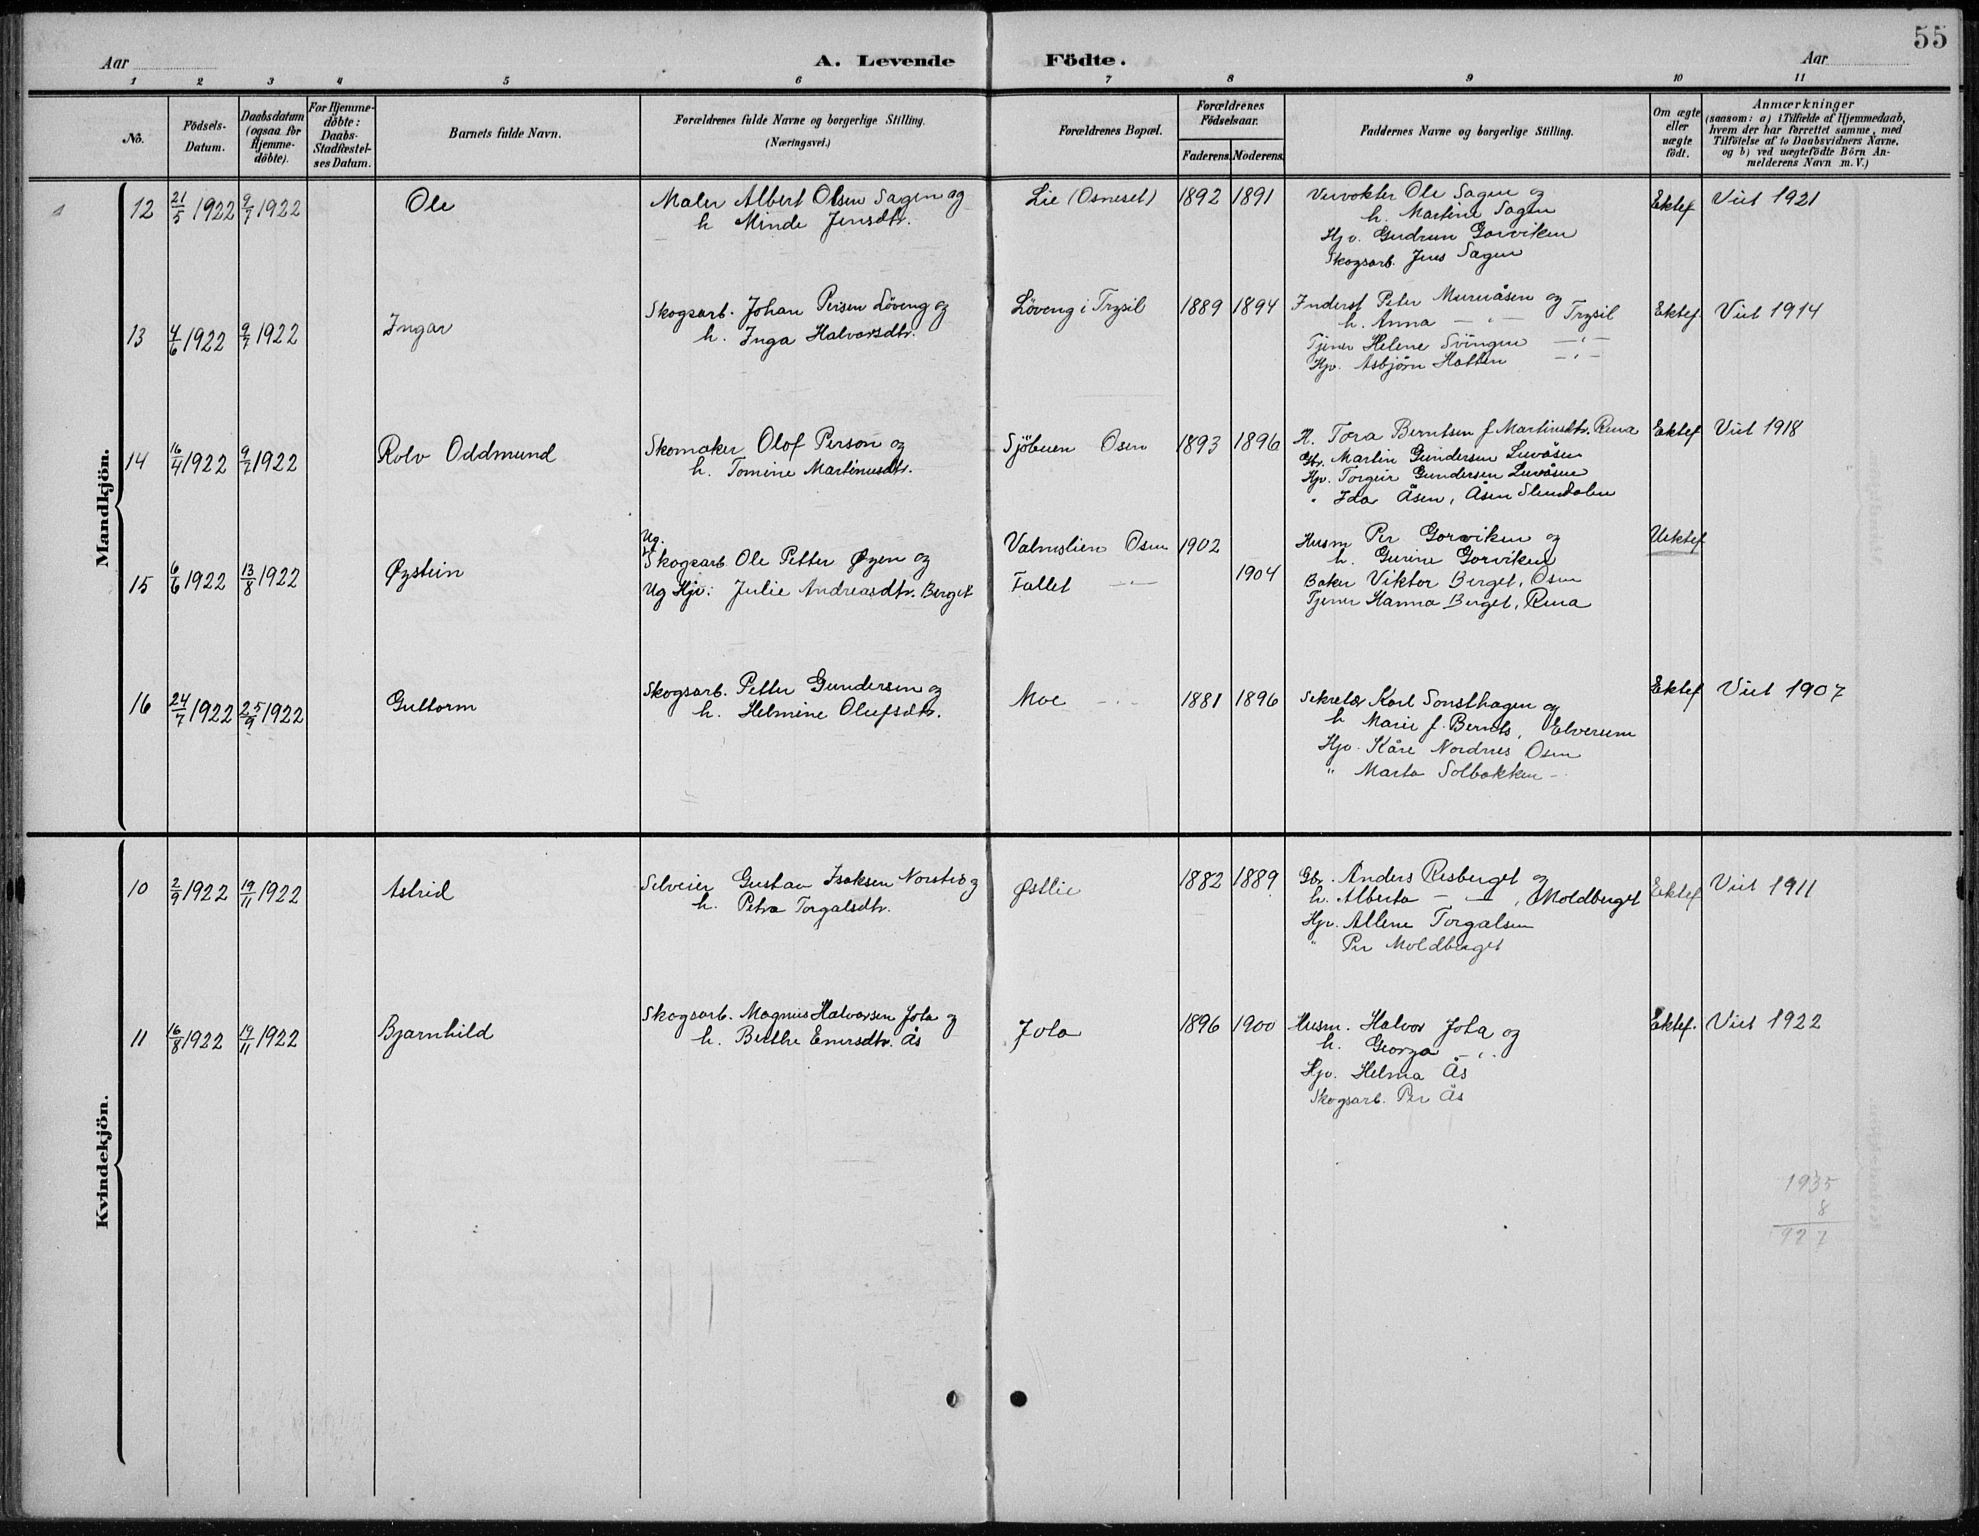 55
Aar A. Levende Födte. Aar
1 2 3 4 5 6 7 8 9 10 11
No. Födsels-Datum. Daabsdatum (ogsaa for Hjemme-döbte). For Hjemme-döbte: Daabs-Stadfæstel-ses Datum. Barnets fulde Navn. Forældrenes fulde Navne og borgerlige Stilling. (Næringsvei.) Forældrenes Bopæl. Forældrenes Födselsaar. Faderens. Moderens. Faddernes Navne og borgerlige Stilling. Om ægte eller uægte födt. Anmærkninger (saasom: a) i Tilfælde af Hjemmedaab, hvem der har forrettet samme, med Tilföielse af to Daabsvidners Navne. og b) ved uægtefödte Börn An-melderens Navn m. V.)
Mandkjön.
12 21/5 1922 9/7 1922 Ole Maler Albert Olsen Sagen og Lie (Osneset) 1892 1891 Ole Sagen og Ektef Viet 1921
h Minde Jensdtr. h. Martine Sagen
Hjv. Gudrun Gorviken
Skogsarb. Jens Sagen
13 4/6 1922 9/7 1922 Ingar Skogsarb. Johan Persen Löveng og Löveng i Trysil 1889 1894 Peter og Ektef Viet 1914
h. Inga Halvorsdtr. h. Anna — " — Trysil
Tjener Helene Svingen — " —
Hjv. Asbjörn Hatten — " —
14 16/4 1922 9/7 1922 Rolv Oddmund Skomaker Olof Person og Sjöbuen Osen 1893 1896 K. Tora Berntsen f. Martinsdtr. Rena Ektef Viet 1918
h. Tomine Martinusdtr. Gbr. Martin Gundersen Luvåsen
Hjv. Torgeir Gundersen Luvåsen
" Ida Åsen, Åsen Slemdalen
15 6/6 1922 13/8 1922 Øystein Ug. Skogsarb Ole Petter Øyen og Valmslien Osen 1902 Husm Per Gorviken og Uektef
h. Gurine Gorviken
Ug Hjv: Julie Andreasdtr. Berget Fallet — " — 1904 Baker Viktor Berget, Osen
Tjener Hanna Berget, Rena
16 24/7 1922 25/9 1922 Guttorm Skogsarb. Petter Gundersen og Moe — " — 1881 1896 Sekretær Karl Sonsthagen og Ektef Viet 1907
h. Helmine Olufsdtr. h Marie f. Bernts, Elverum
Hjv. Kåre Nordnes Osen
" Marta Solbakken —
Kvindekjön.
10 2/9 1922 19/11 1922 Astrid Selveier Gustav Isaksen og Østlie 1882 1889 Gbr. Anders Risberget og Ektef Viet 1911
h. Petra Torgalsdtr. h. Alberta — " —, Moldberget
Hjv. Allene Torgalsen
" Per Moldberget
11 16/8 1922 19/11 1922 Bjarnhild Skogsarb. Magnus Halvorsen Jota og Jota 1896 1900 Husm. Halvor Jota og Ektef. Viet 1922
h. Berthe Einersdtr. Ås h. Georga — " —
Hjv. Helma Ås
Skogsarb. Per Ås
1935
8
927